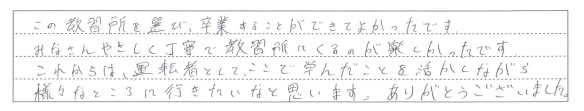 この教習所を選び、卒業することができてよかったです。
みなさんやさしく丁寧で教習所にくるのが楽しかったです。
これからは、運転者として、ここで学んだことを活かしながら
様々なところに行きたいなと思います。ありがとうございました。